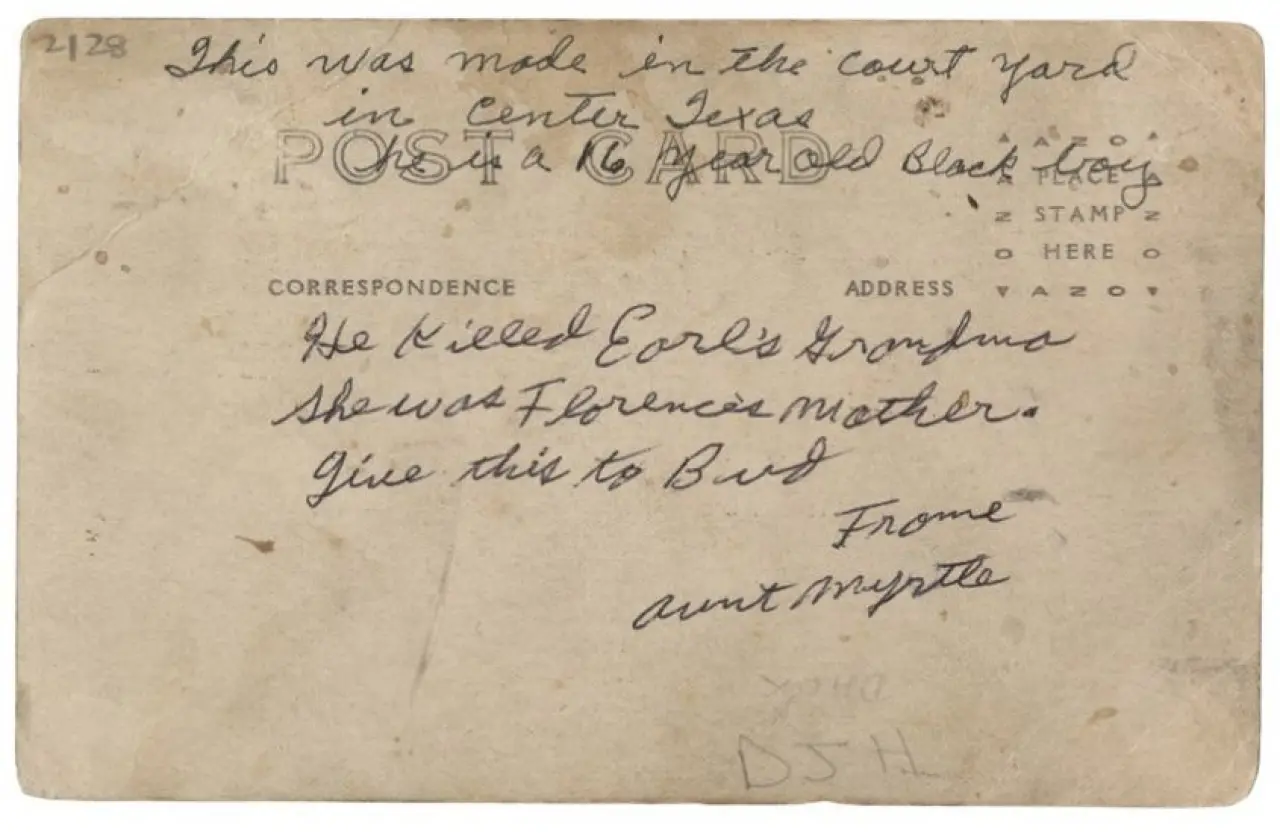 2128
This was made in the court yard
in Center Texas
POST CARD
he is a 16 year old Black boy
AZO
PLACE
STAMP
HERE
AZO
CORRESPONDENCE
ADDRESS
He Killed Earl's Grandma
She was Florence's Mother.
Give this to Bud
Frome
Aunt Myrtle
DJH